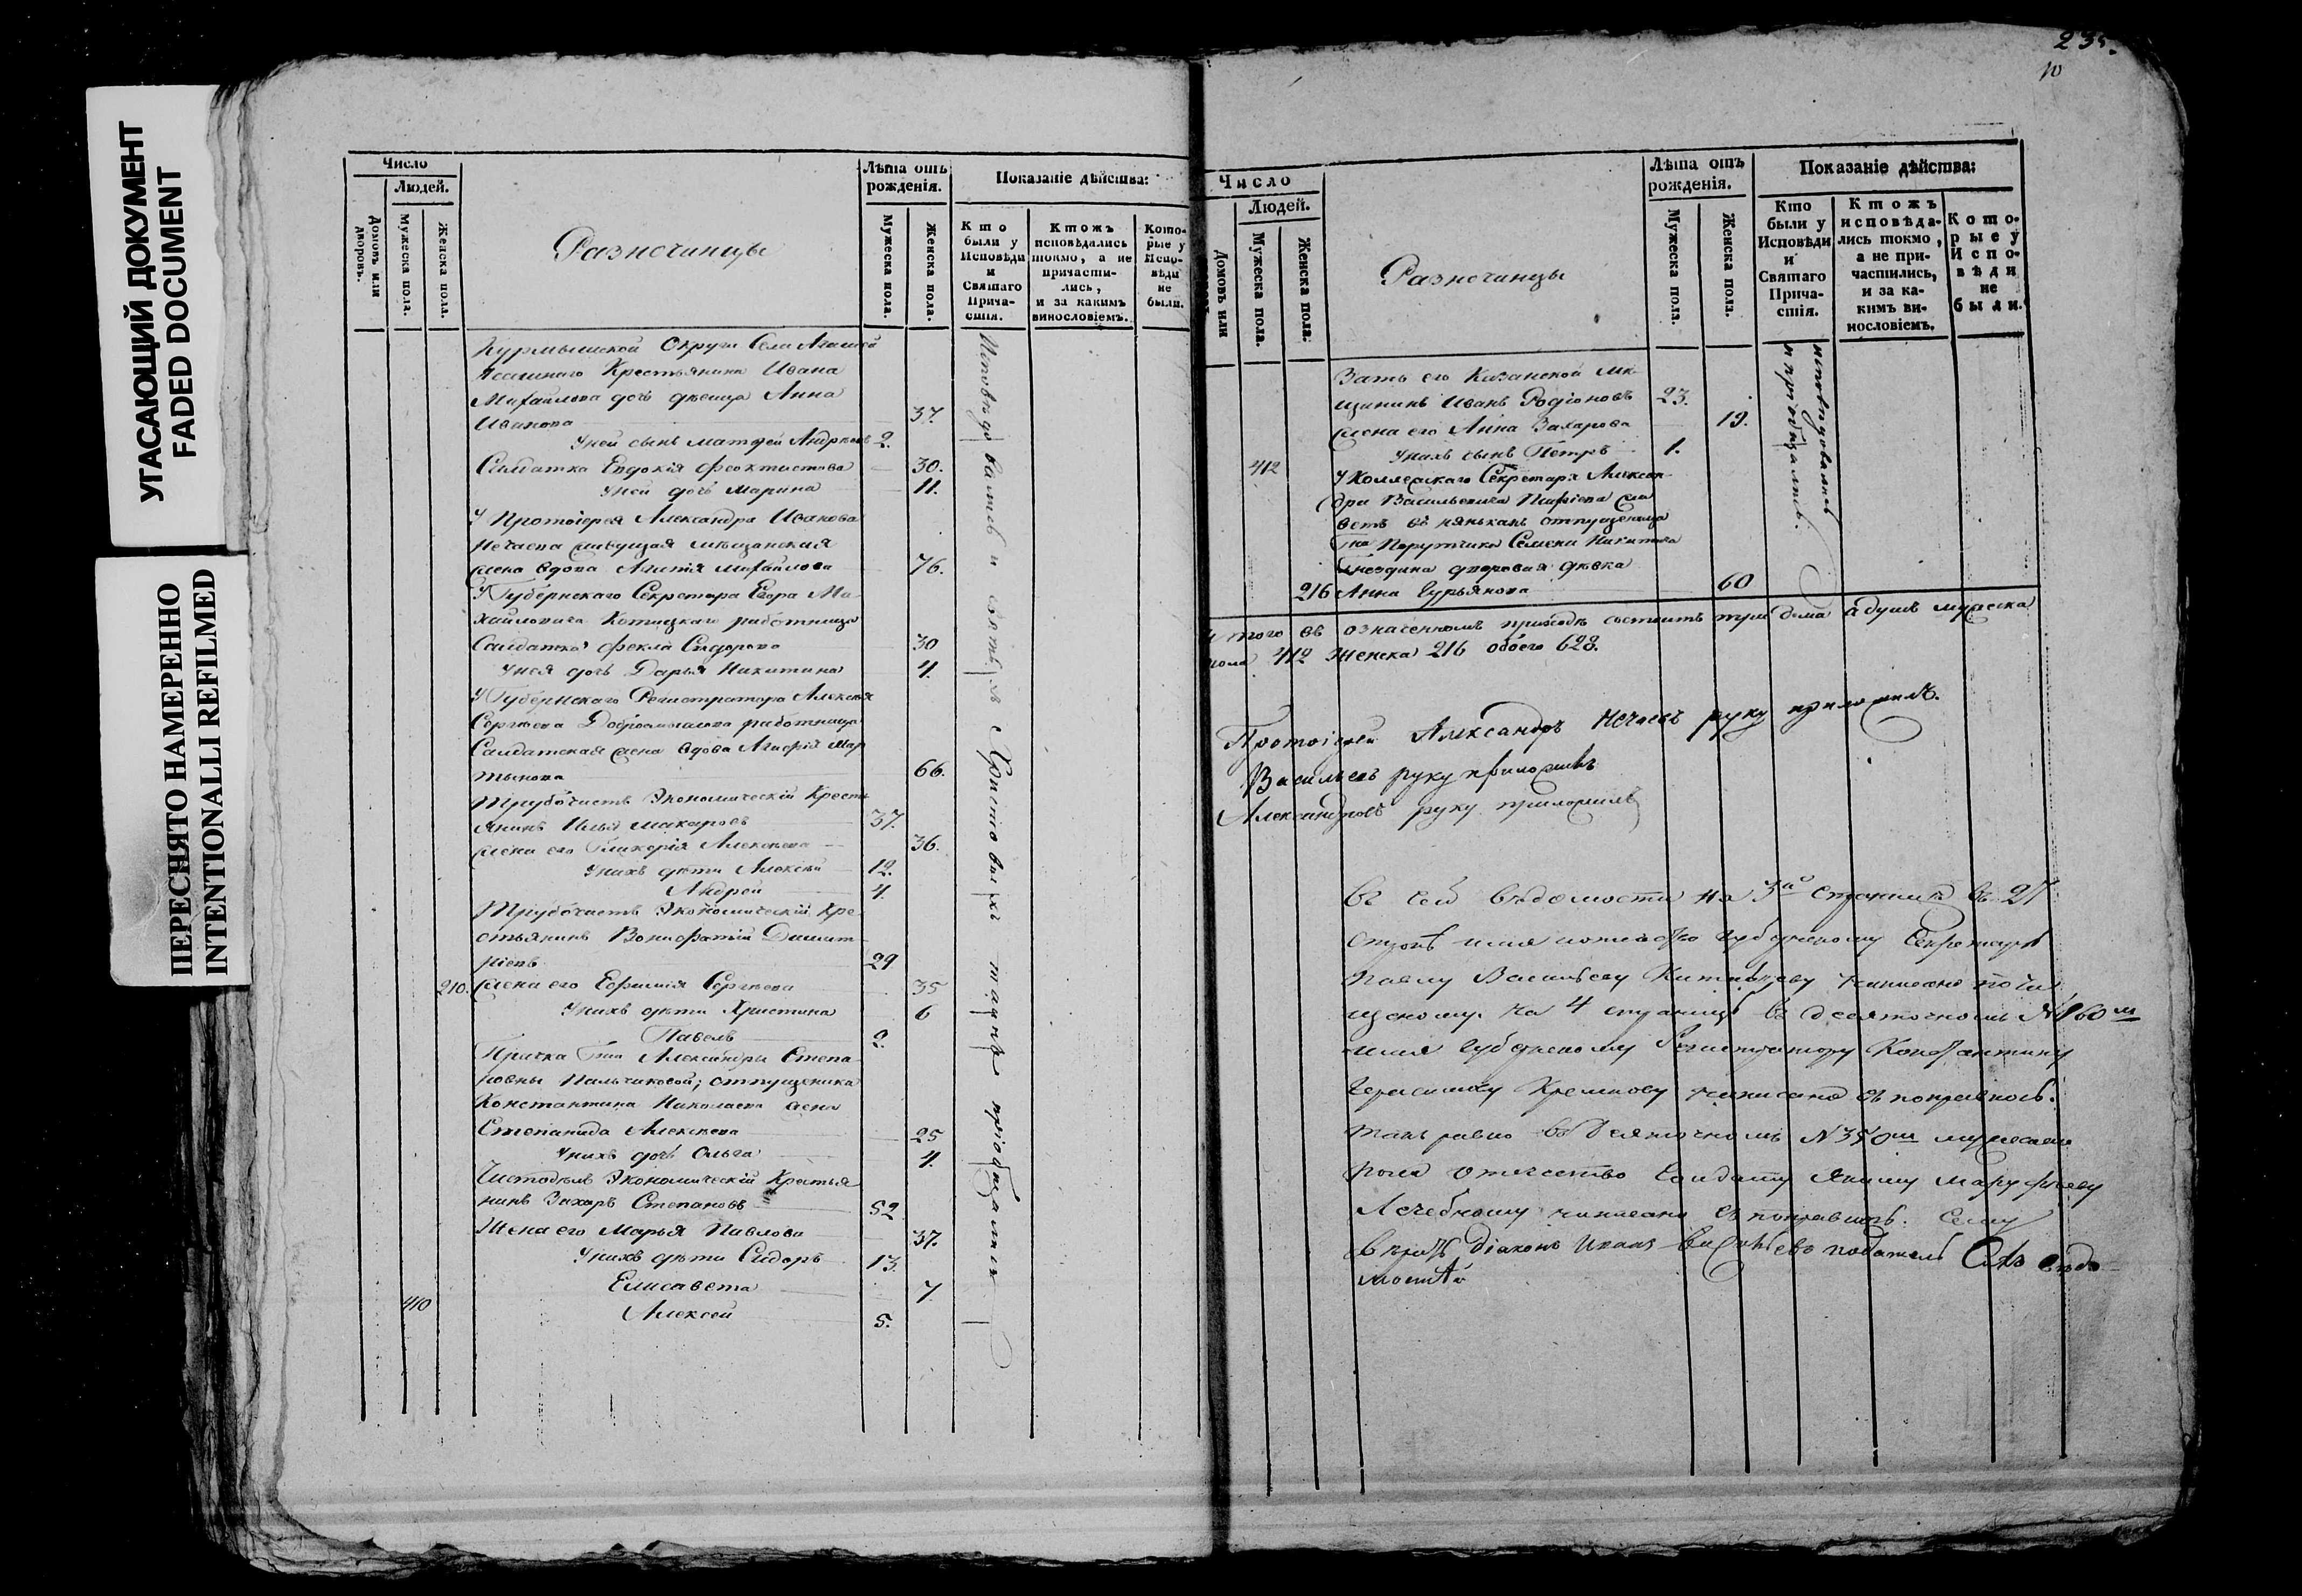 УГАСАЮЩИЙ ДОКУМЕНТ
FADED DOCUMENT
ПЕРЕСНЯТО НАМЕРЕННО
INTENTIONALLI REFILMED
Число
Людей.
Домовъ или дворовъ.
Мужеска пола.
Женска пола.
Разночинцы
Лѣта отъ рожденія.
Мужеска пола.
Женска пола.
Показаніе дѣйства:
Кто были у Исповѣди и Святаго Прича-стія.
Ктожъ исповѣдались токмо, а не причасти-лись, и за какимъ винословіемъ.
Кото-рые у Испо-вѣди не были.
Курмышской Округи Села
Крестьянина Ивана
Михайлова дочь девица Анна
Иванова 37.
У ней сынъ Матфей 2.
Салдатка Евдокія Феоктистова 30.
У ней дочь Марина 11.
У Протоіерея Александра Иванова
Нечаева живущая мѣщанская
жена вдова Михайлова 76.
У Губернскаго Секретаря Егора Ми-
хайловича работница
Салдатка Фекла Сидорова 30
У нея дочь Дарья Никитина 4.
У Губернскаго Регистратора Алексѣя
Сергѣева работница
Салдатская жена вдова Мар
тынова 66.
Трубочистъ Экономическій Кресть
янинъ Илья Макаровъ 37.
жена его Гликерія Алексѣева 36.
У нихъ дѣти Алексѣй 12.
Андрей 4.
Трубочистъ Экономическій Кре-
стьянинъ Вонифатій Димит-
ріевъ 29
210. жена его Евфимія Сергѣева 35
У нихъ дѣти Христина 6
Павелъ 2.
Гжи Александры Степа-
новны Пальчиковой; отпущеника
Константина Николаева жена
Степанида Алексѣева 25
У нихъ дочь Ольга 4.
Чистодѣлъ Экономическій Крестья
нинъ Захаръ Степановъ 52
Жена его Марья Павлова 37.
У нихъ дѣти Сидоръ 13.
Елисавета 7
410 Алексей 5.
Исповѣдывались и святыхъ Христовыхъ таинъ пріобщались
235.
10
Число
Людей.
Домовъ или
Мужеска пола.
Женска пола.
Разночинцы
Лѣта отъ рожденія.
Мужеска пола.
Женска пола.
Показаніе дѣйства:
Кто были у Исповѣди и Святаго Прича-стія.
Ктожъ исповѣда-лись токмо, а не при-частились, и за ка-кимъ ви-нословіемъ.
Кото-рые у Испо-вѣди не были.
Зять его Казанской мѣ-
щанинъ Иванъ Родіоновъ 23.
жена его Анна Захарова 19.
У нихъ сынъ Петръ 1.
412 У Коллежскаго Секретаря Алексан-
дра Васильевича
въ нянькахъ отпущеница
Гна Порутчика Семена Никитича
дворовая дѣвка
216 Анна Гурьянова 60
исповѣдовались и пріобщались.
Итого въ означенномъ приходѣ состоитъ три дома а душъ мужеска
пола 412 Женска 216 обоего 628.
Протоіерей Александръ Нечаевъ руку приложилъ.
Васильевъ руку приложилъ
Александровъ руку приложилъ
Въ сей вѣдомости на 3й страницѣ въ 21
строкѣ Губернскому Секретарю
Павлу Васильеву написано по чи
щеному. На 4 страницѣ въ десяточномъ №160м
имя Губернскому Регистратору Константину
Герасимову написано съ поправкою.
такъ равно въ десяточномъ №350м мужеска
пола отчество Солдату Якиму
Лечебному написано съ поправкою. Сему
діаконъ Иванъ вѣдо-
мости